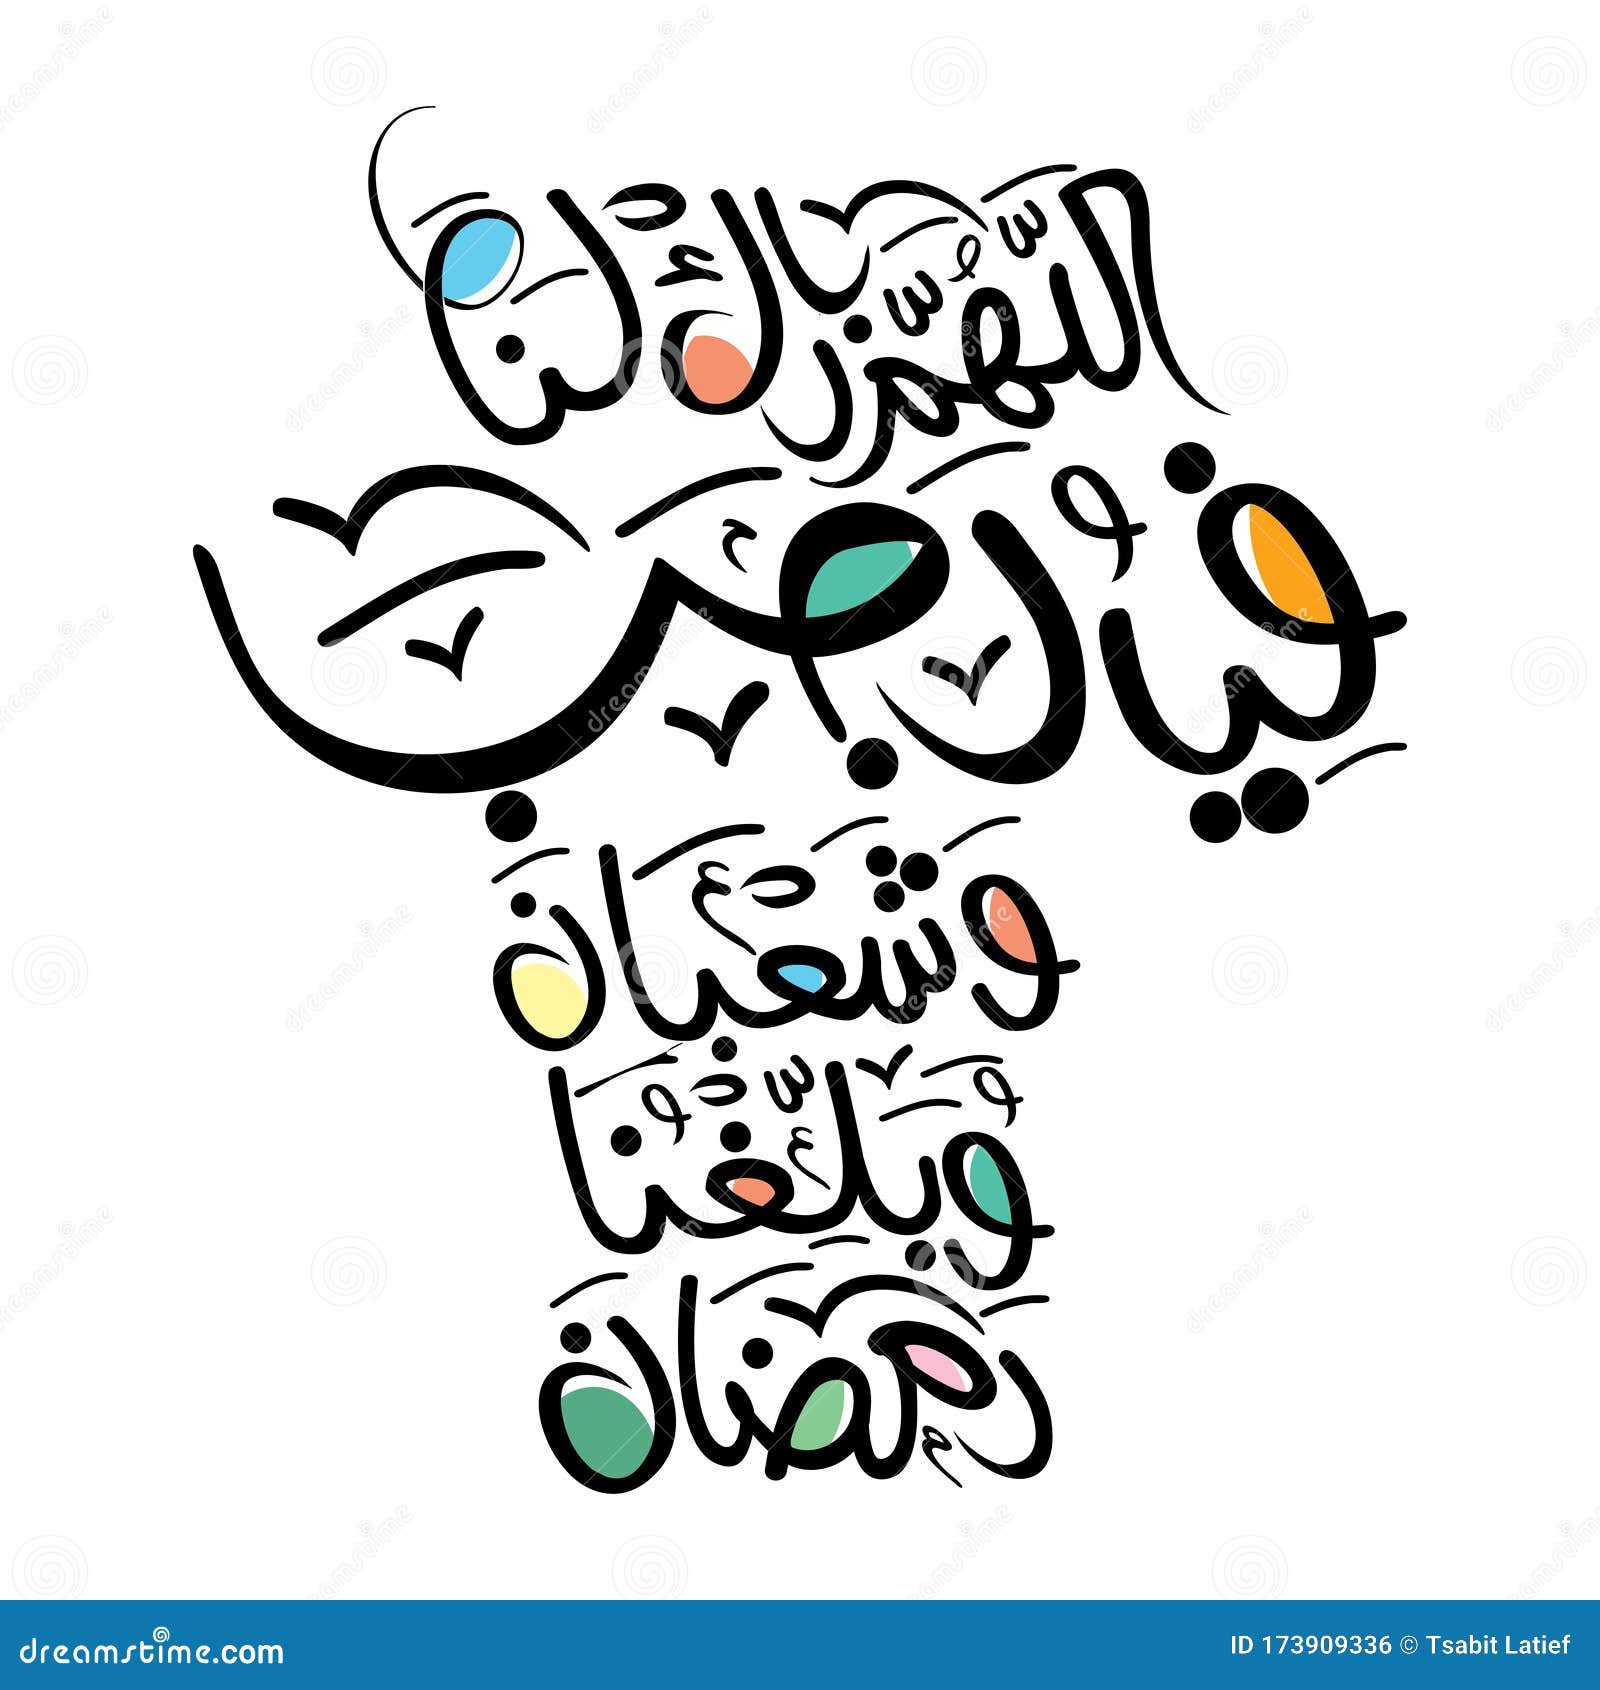 اللهم بارك لنا
في رجب
وشعبان
وبلغنا
رمضان
dreamstime.com
ID 173909336 © Tsabit Latief